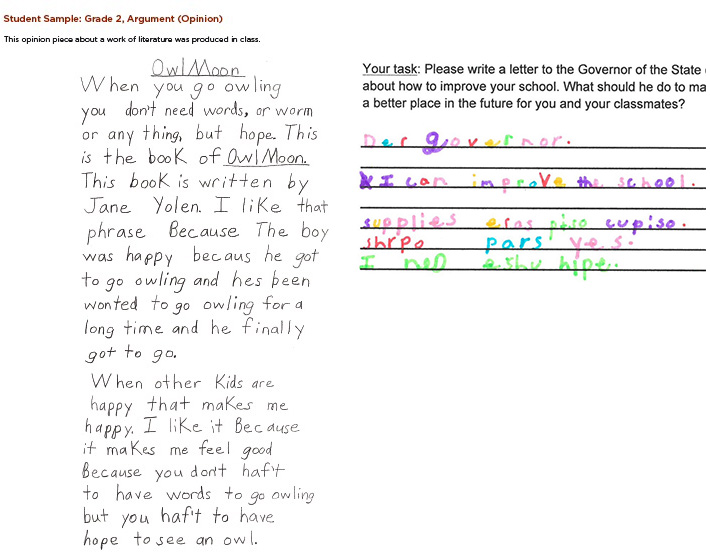 Student Sample: Grade 2, Argument (Opinion)
This opinion piece about a work of literature was produced in class.
Owl Moon
When you go owling
you don't need words, or worm
or any thing, but hope. This
is the book of Owl Moon.
This book is written by
Jane Yolen. I like that
phrase Because The boy
was happy becaus he got
to go owling and hes been
wonted to go owling for a
long time and he finally
got to go.
When other Kids are
happy that makes me
happy. I like it Because
it makes me feel good
Because you don't haf't
to have words to go owling
but you haf't to have
hope to see an owl.
Your task: Please write a letter to the Governor of the State
about how to improve your school. What should he do to ma
a better place in the future for you and your classmates?
Der governor.
I can improve the school.
supplies eras ptso cup'so.
shrpo pars yes.
I neD eshu hipe..